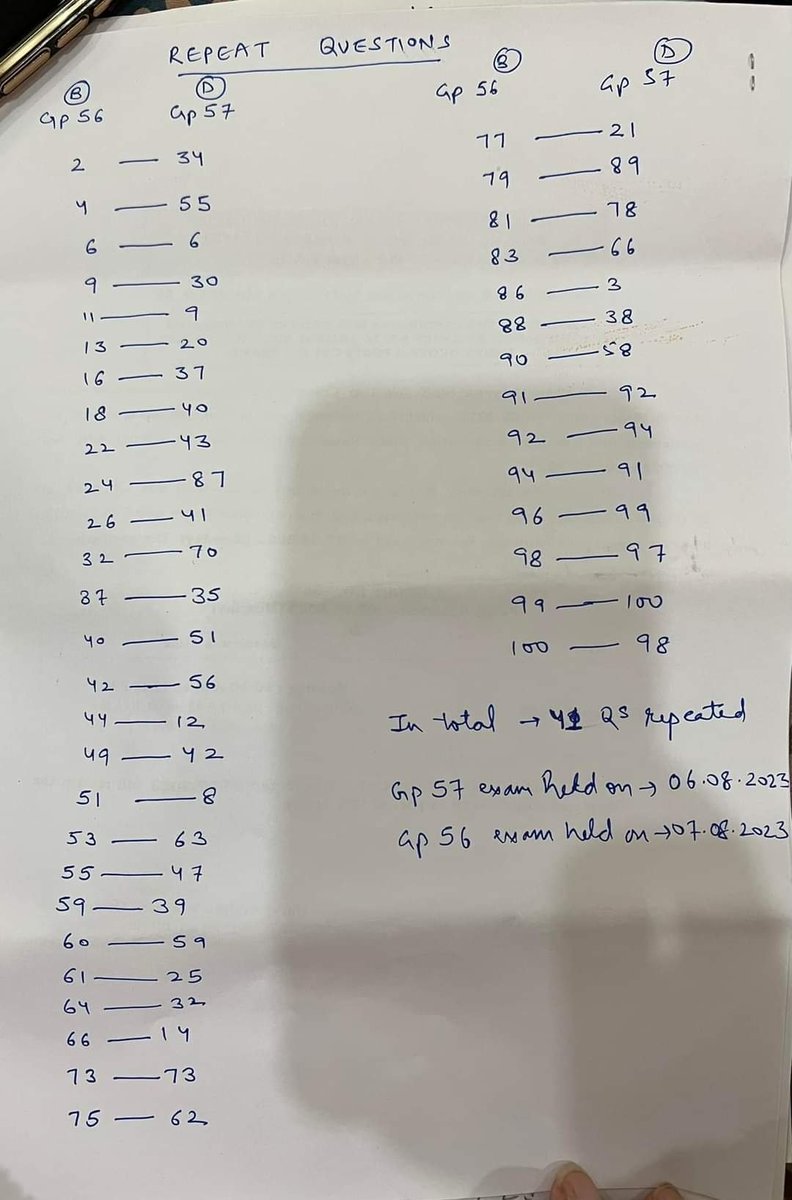 REPEAT QUESTIONS
B D
Gp 56 Gp 57
2 — 34
4 — 55
6 — 6
9 — 30
11 — 9
13 — 20
16 — 37
18 — 40
22 — 43
24 — 87
26 — 41
32 — 70
37 — 35
40 — 51
42 — 56
44 — 12
49 — 42
51 — 8
53 — 63
55 — 47
59 — 39
60 — 59
61 — 25
64 — 32
66 — 14
73 — 73
75 — 62
B D
Gp 56 Gp 57
77 — 21
79 — 89
81 — 78
83 — 66
86 — 3
88 — 38
90 — 58
91 — 92
92 — 94
94 — 91
96 — 99
98 — 97
99 — 100
100 — 98
In total → 41 QS repeated
Gp 57 exam held on → 06.08.2023
Gp 56 exam held on → 07.08.2023